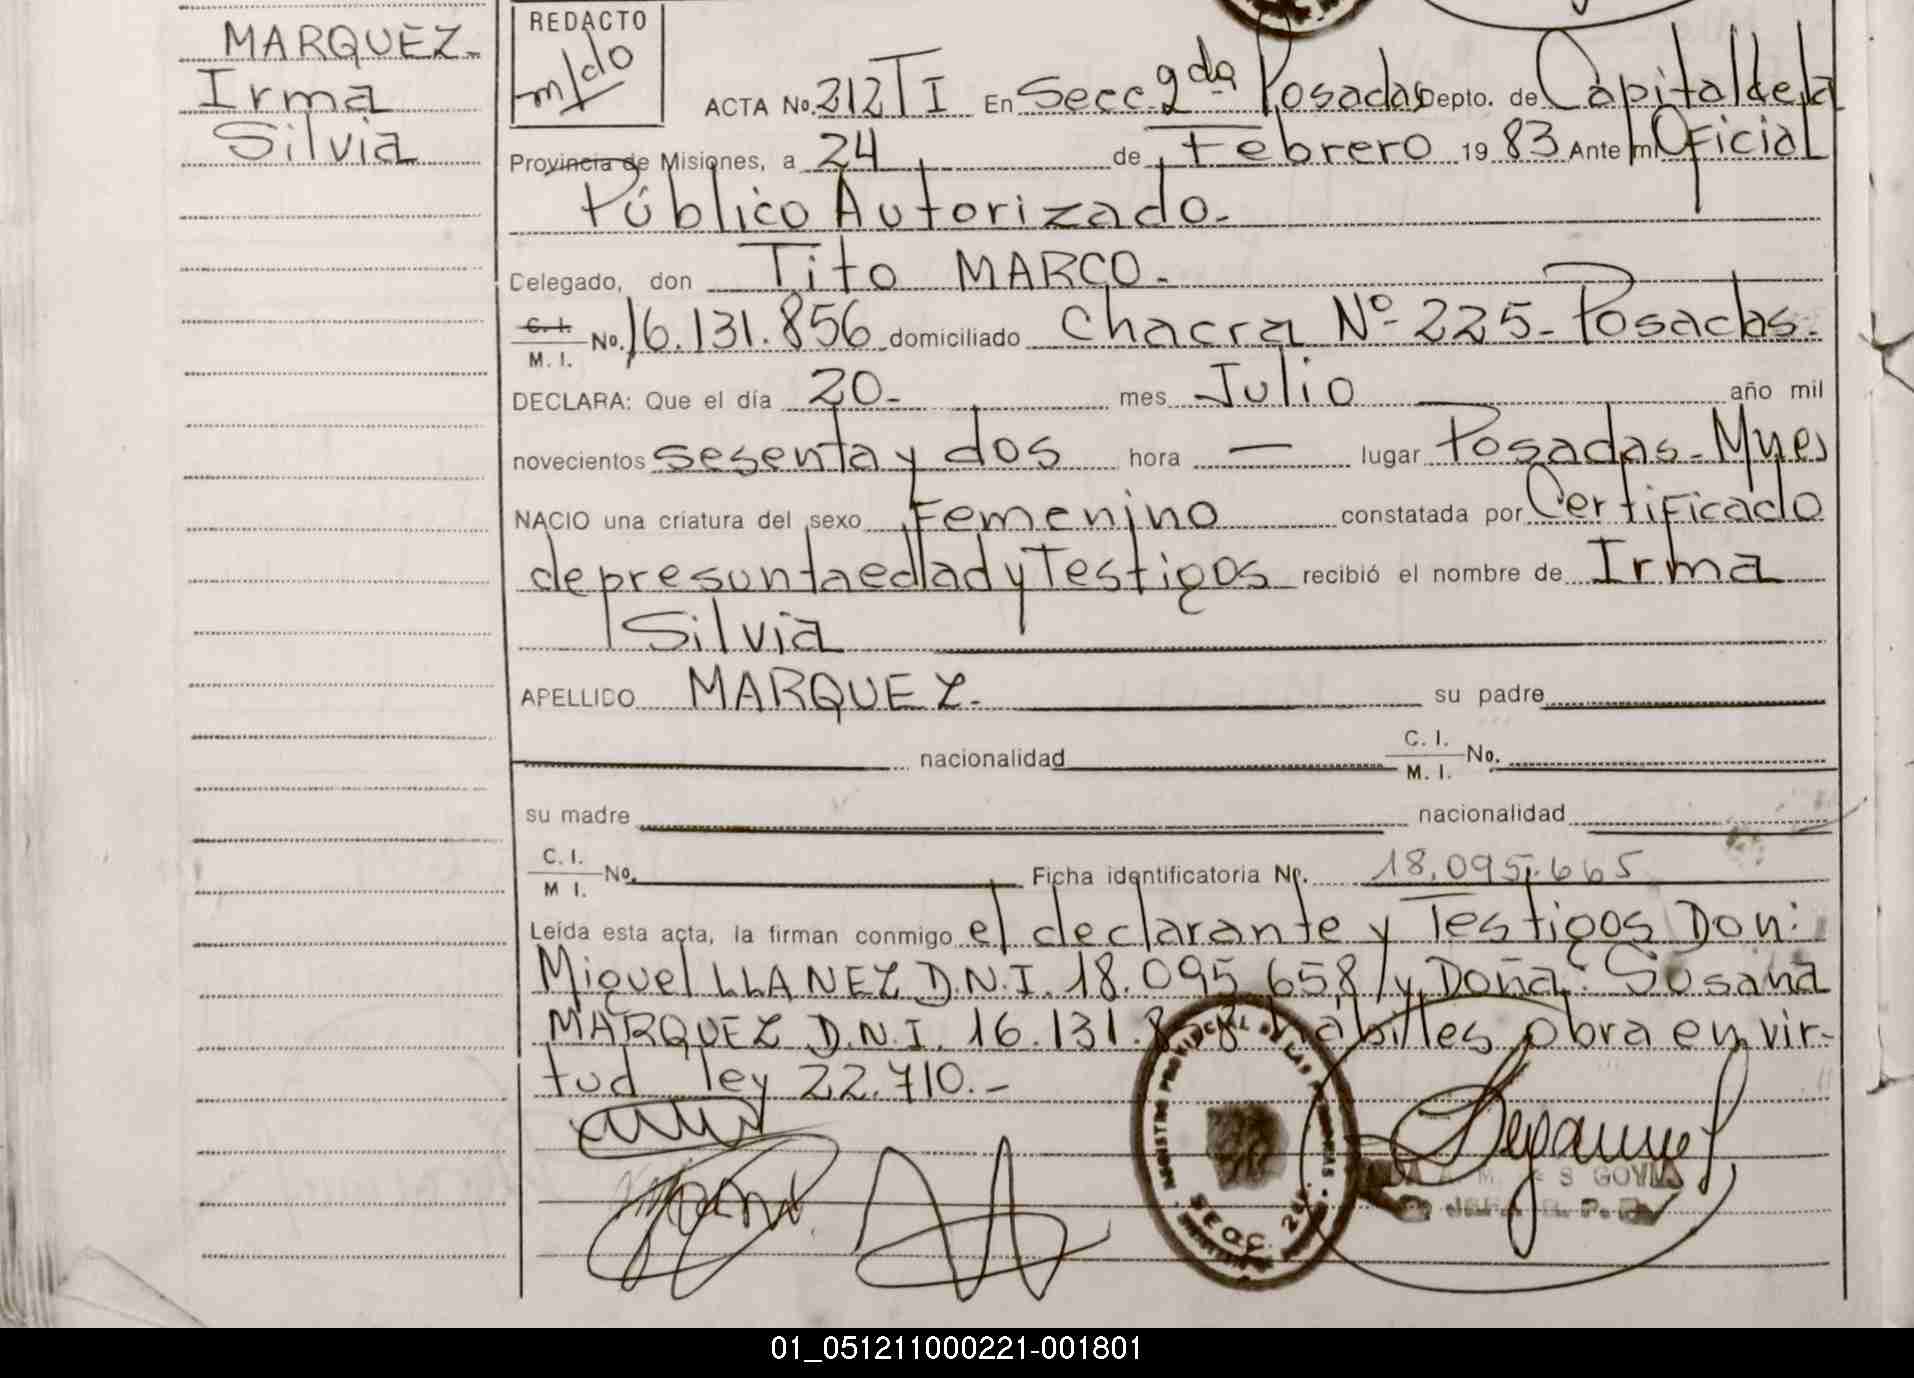 MARQUEZ.
Irma
Silvia
REDACTO
m/do
ACTA No. 212 T I En Secc. 2da Posadas Depto. de Capital de la
Provincia de Misiones, a 24 de Febrero 19 83 Ante mi Oficial
Público Autorizado.
Celegado, don Tito MARCO.
C. I. / M. I. No. 16.131.856 domiciliado Chacra Nº 225 - Posadas.
DECLARA: Que el día 20 - mes Julio año mil
novecientos sesenta y dos hora — lugar Posadas - Mnes
NACIO una criatura del sexo Femenino constatada por Certificado
de presunta edad y Testigos recibió el nombre de Irma
Silvia
APELLIDO MARQUEZ. su padre
nacionalidad C. I. / M. I. No.
su madre nacionalidad
C. I. / M I. No. Ficha identificatoria Nº. 18.095.665
Leída esta acta, la firman conmigo el declarante y Testigos Don:
Miguel LLANEZ D.N.I. 18.095.658/y Doña: Susana
MARQUEZ D.N.I. 16.131. habilles obra en vir-
tud ley 22.710.-
REGISTRO PROVINCIAL DE LAS PERSONAS
SECC. 2da.
GOYIA
JEFA R. P. P.
01_051211000221-001801